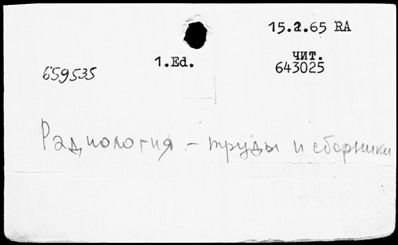 15.2.65 RA
1.Ed.
чит.
643025
659535
Радиология – труды и сборники